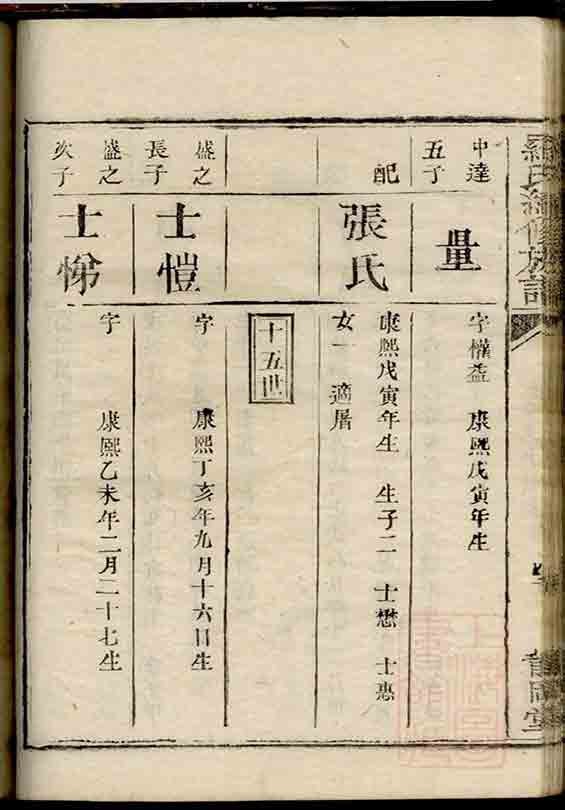 羅氏續修族譜
中達
五子
量
字權益 康熙戊寅年生
配
張氏
康熙戊寅年生 生子二 士懋 士惠
女一 適屠
十五世
盛之
長子
士愷
字 康熙丁亥年九月十六日生
盛之
次子
士悌
字 康熙乙未年二月二十七生